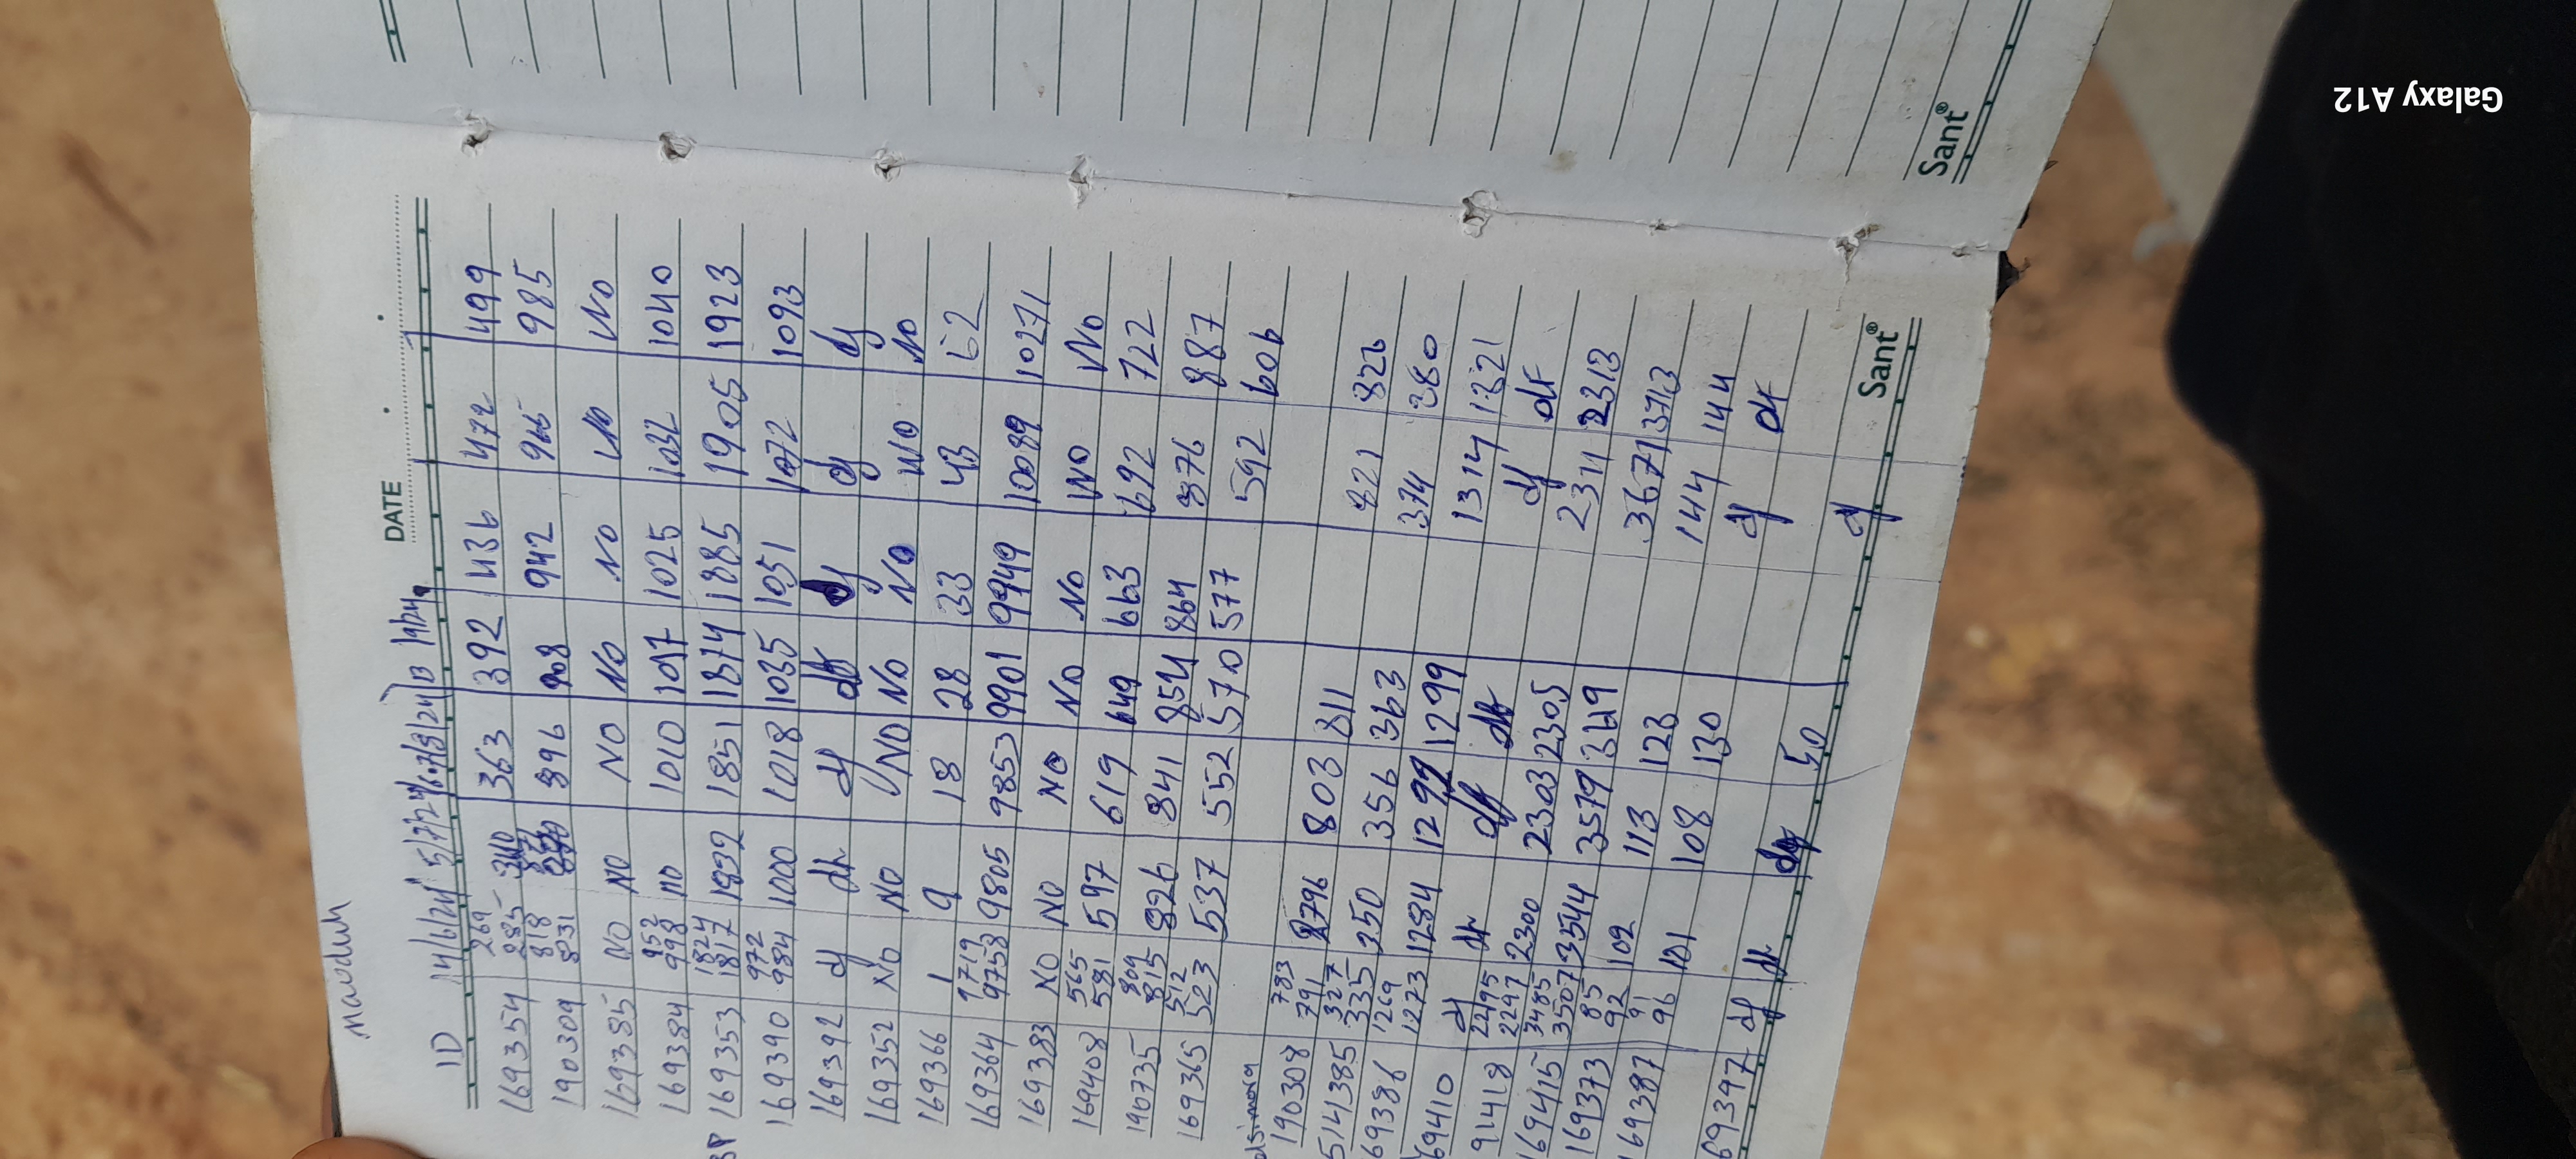 Mavduh
DATE
ID 14/6/24 5/7/24
169354 269 285 340 363 392 436 472 499
190309 818 831 896 908 942 965 985
169385 NO NO NO NO NO NO NO
169384 952 998 NO 1010 1017 1025 1032 1040
BP 169353 1824 1817 1832 1851 1874 1885 1905 1923
169390 972 984 1000 1018 1035 1051 1072 1093
169392 df df df df df df df
169352 NO NO NO NO NO NO NO
169366 1 9 18 28 33 43 52
169364 9719 9758 9805 9853 9901 9949 10089 10271
169383 NO NO NO NO NO NO NO
169408 565 581 597 619 649 663 692 722
190735 809 815 826 841 854 864 876 887
169365 512 523 537 552 570 577 592 606
190308 783 791 796 803 811 821 826
514385 327 335 350 356 363 374 380
69386 1269 1273 1284 1292 1299 1314 1321
69410 df df df df df dF
91418 2295 2297 2300 2303 2305 2311 2313
169415 3485 3507 3544 3579 3619 3671 3713
169373 85 92 102 113 123 144 144
169387 91 96 101 108 130 df df
69397 df df df 50 df
Sant®
Sant®
Galaxy A12